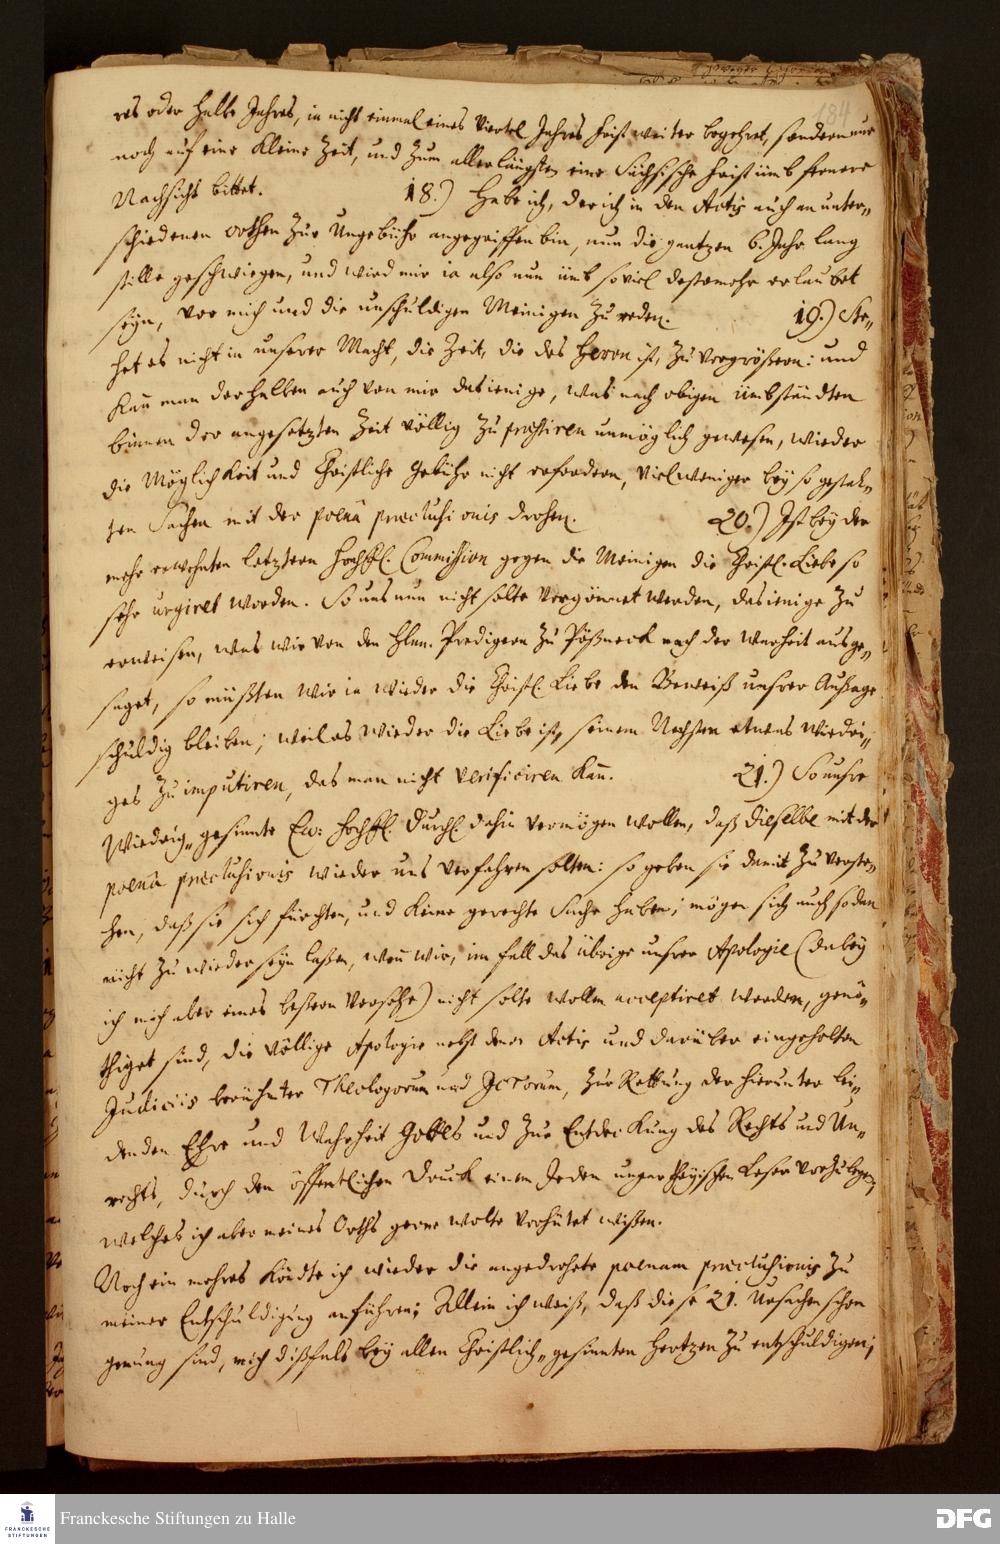 184
res oder halbe Jahres, ia nicht einmal eines Viertel Jahres frist weiter begehret, sondern nur
noch auf eine kleine Zeit, und zum allerlängsten eine Sächsische frist ümb fernere
Nachsicht bittet. 18.) Habe ich, der ich in den Actis auch an unter„
schiedenen orthen zur Ungebühr angegriffen bin, nun die gantzen 6. Jahr lang
stille geschwiegen, und wird mir ia also nun ümb soviel destomehr erlaubet
seyn, vor mich und die unschuldigen Meinigen zu reden. 19.) Ste„
het es nicht in unserer Macht, die Zeit, die des Herrn ist, zu vergrößern: und
kan man derhalben auch von mir dasienige, was nach obigen ümbständten
binnen der angesetzten Zeit völlig zu præstiren unmöglich gewesen, wieder
die Möglichkeit und Christliche gebühr nicht erfordern, vielweniger bey so gestal„
ten Sachen mit der poenâ præclusionis drohen. 20.) Ist bey der
mehr erwehnten letztern Hochfl. Commission gegen die Meinigen die Christl. Liebe so
sehr urgiret worden. So uns nun nicht solte vergönnet werden, dasienige zu
erweisen, was wir von den Hhn. Predigern zu Pößneck nach der Warheit ausge„
saget, so müßten wir ia wieder die Christl. Liebe den Beweiß unsrer Außage
schuldig bleiben; weil es wieder die Liebe ist, seinem Nechsten etwas wiedri„
ges zu imputiren, das man nicht verificiren kan. 21.) So unsre
Wiedrig„gesinnte Ew: Hochfl. Durchl. dahin vermögen wollen, daß dieselbe mit der
poenâ præclusionis wieder uns verfahren solten: so geben sie damit zu verste„
hen, daß sie sich fürchten, und keine gerechte Sache haben; mögen sich auch sodan
nicht zu wieder seyn laßen, wen wir, im fall das übrige unsrer Apologie (dabey
ich mich aber eines bessern versehe) nicht solte wollen acceptiret werden, genö„
thiget sind, die völlige Apologie nebst denen Actis und darüber eingeholten
Judiciis berühmter Theologorum und JCTorum, zur Rettung der hierunter lei„
denden Ehre und Wahrheit Gottes und zur Entdeckung des Rechts und Un„
rechts, durch den öffentlichen Druck einem Jeden unpartheyischen Leser vorzulegen,
welches ich aber meines Orths gerne wolte verhütet wißen.
Noch ein mehres köndte ich wieder die angedrohete poenam præclusionis zu
meiner Entschuldigung anführen; Allein ich weiß, daß diese 21. Ursachen schon
genung sind, mich dißfals bey allen Christlich„gesinnten Hertzen zu entschuldigen;
FRANCKESCHE
STIFTUNGEN
Franckesche Stiftungen zu Halle
DFG